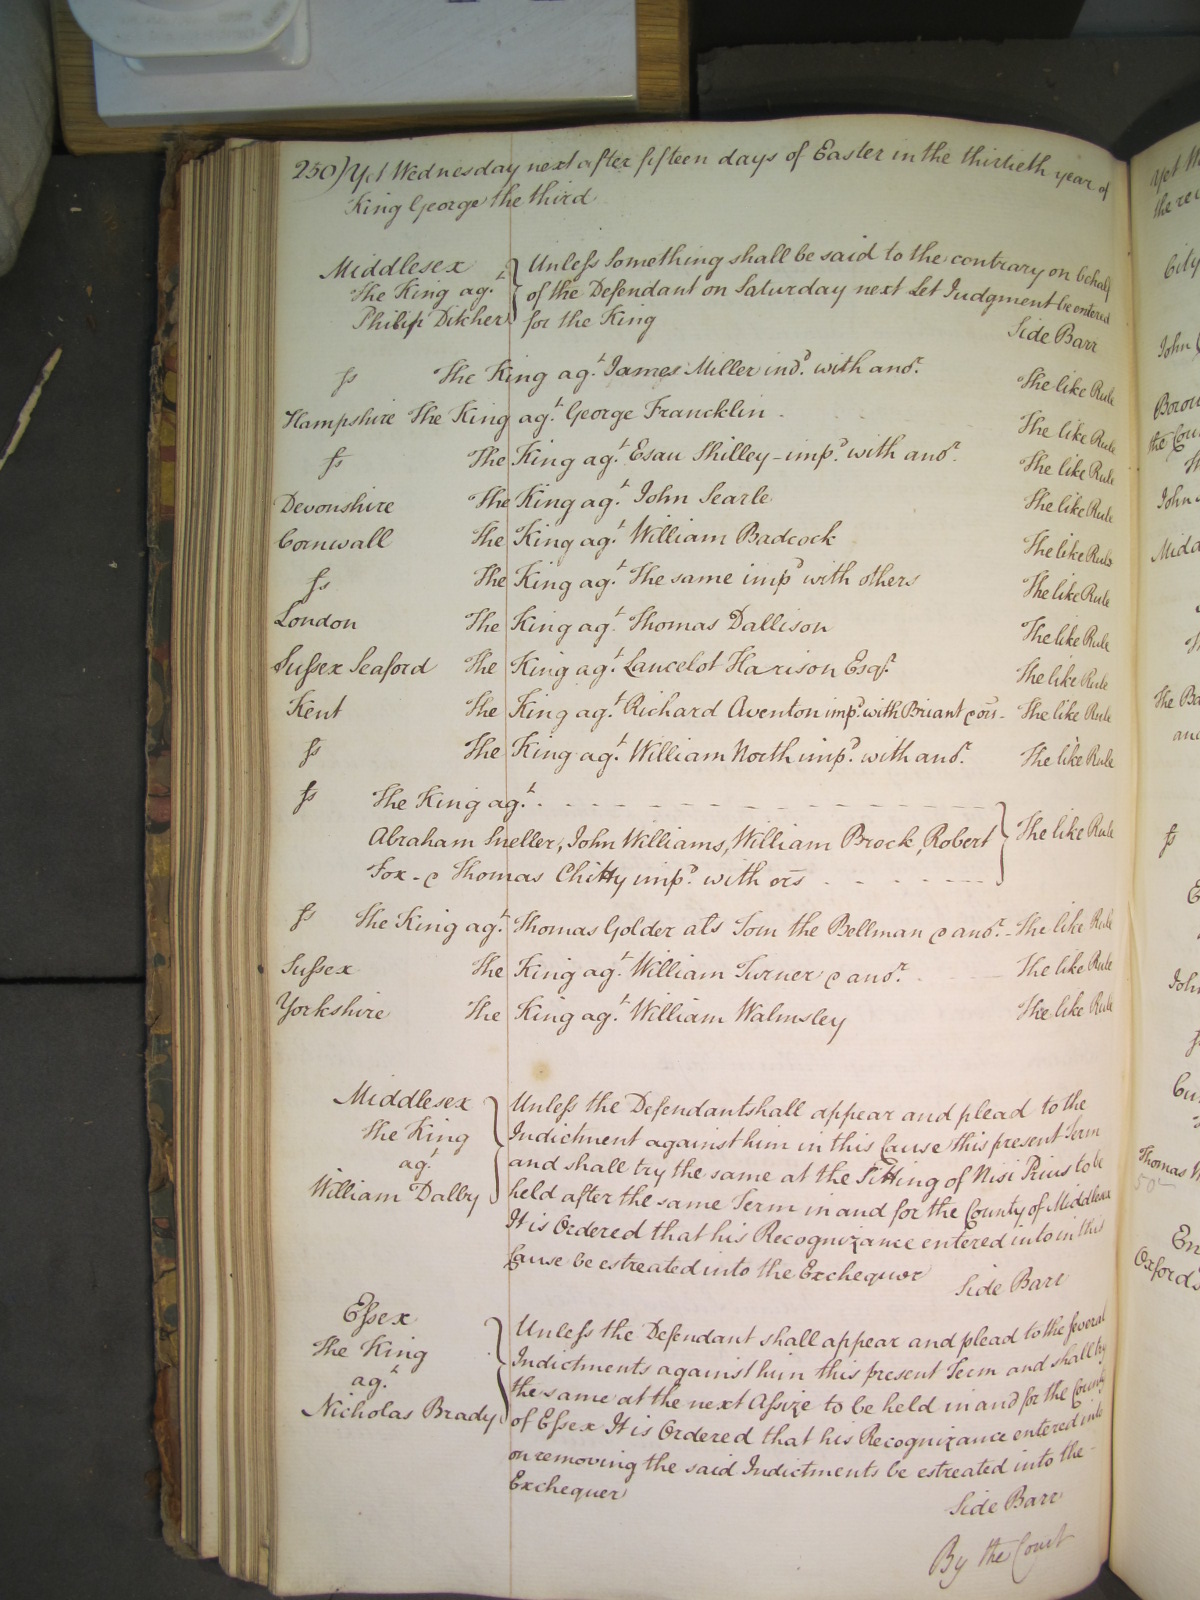 250) Yet Wednesday next after fifteen days of Easter in the thirtieth year of
King George the third
Middlesex
The King agt.
Philip Ditcher
Unless Something shall be said to the contrary on behalf
of the Defendant on Saturday next Let Judgment be entered
for the King
Side Barr
ss The King agt. James Miller ind.d with anor. The like Rule
Hampshire The King agt. George Francklin - The like Rule
ss The King agt. Esau Shilley - imp.d with anor. The like Rule
Devonshire The King agt. John Searle The like Rule
Cornwall The King agt. William Badcock The like Rule
ss The King agt. The same imp.d with others The like Rule
London The King agt. Thomas Dallison The like Rule
Sussex Seaford The King agt. Lancelot Harison Esqr. The like Rule
Kent The King agt. Richard Aventon imp.d with Briant & ors - The like Rule
ss The King agt. William North imp.d with anor. The like Rule
ss The King agt. - - - - - - - - - - - -
Abraham Sneller, John Williams, William Brock, Robert The like Rule
Fox - & Thomas Chitty imp.d with ors - - - - - -
ss The King agt. Thomas Golder als Tom the Bellman & anor. - The like Rule
Sussex The King agt. William Turner & anor. The like Rule
Yorkshire The King agt. William Walmsley The like Rule
Middlesex
The King
agt.
William Dalby
Unless the Defendant shall appear and plead to the
Indictment against him in this Cause this present Term
and shall try the same at the Sitting of Nisi Prius to be
held after the same Term in and for the County of Middlesex
It is Ordered that his Recognizance entered into in this
Cause be estreated into the Exchequer
Side Barr
Essex
The King
agt.
Nicholas Brady
Unless the Defendant shall appear and plead to the several
Indictments against him this present Term and shall try
the same at the next Assize to be held in and for the County
of Essex It is Ordered that his Recognizance entered into
on removing the said Indictments be estreated into the -
Exchequer
Side Barr
By the Court